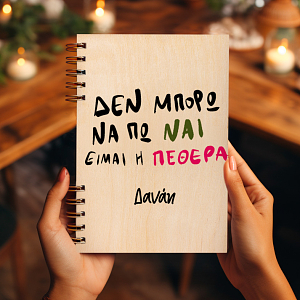 ΔΕΝ ΜΠΟΡΩ
ΝΑ ΠΩ ΝΑΙ
ΕΙΜΑΙ Η ΠΕΘΕΡΑ
Δανάη